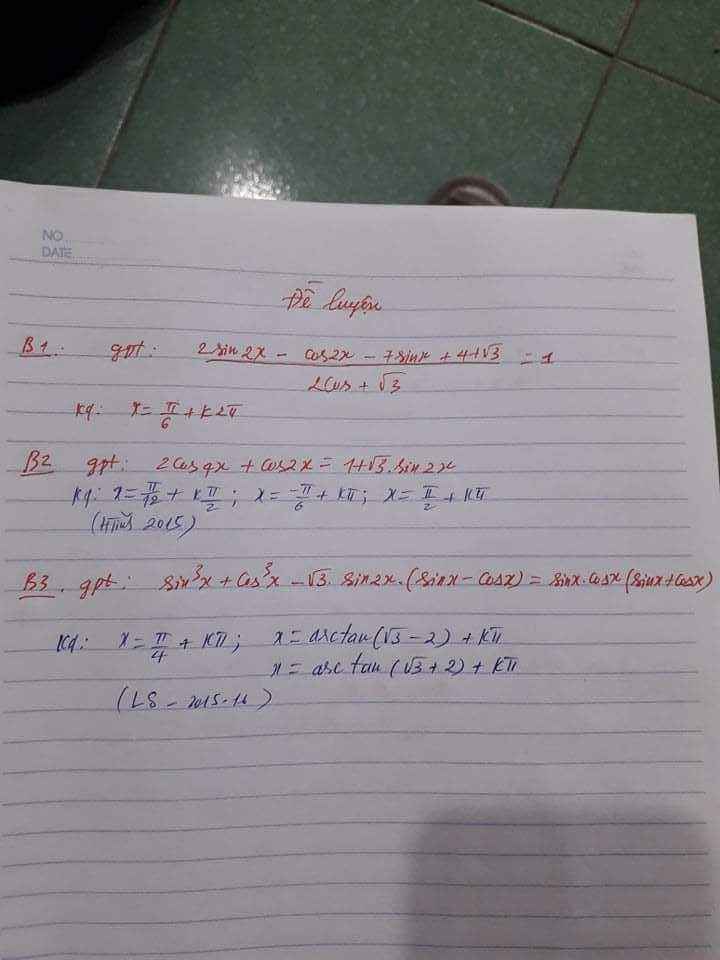 NO
DATE
Đề luyện
B1: gpt: (2sin2x - cos2x - 7sinx + 4+√3) / (2cos + √3) = 1
kq: x = π/6 + k2π
B2 gpt: 2cos4x + cos2x = 1+√3.sin2x
kq: x = π/12 + kπ/2 ; x = -π/6 + kπ ; x = π/2 + kπ
2015)
B3. gpt: sin³x + cos³x - √3. sin2x.(sinx - cosx) = sinx.cosx(sinx+cosx)
kq: x = π/4 + kπ ; x = arctan(√3-2) + kπ
x = arctan(√3+2) + kπ
(LS - 2015-16)